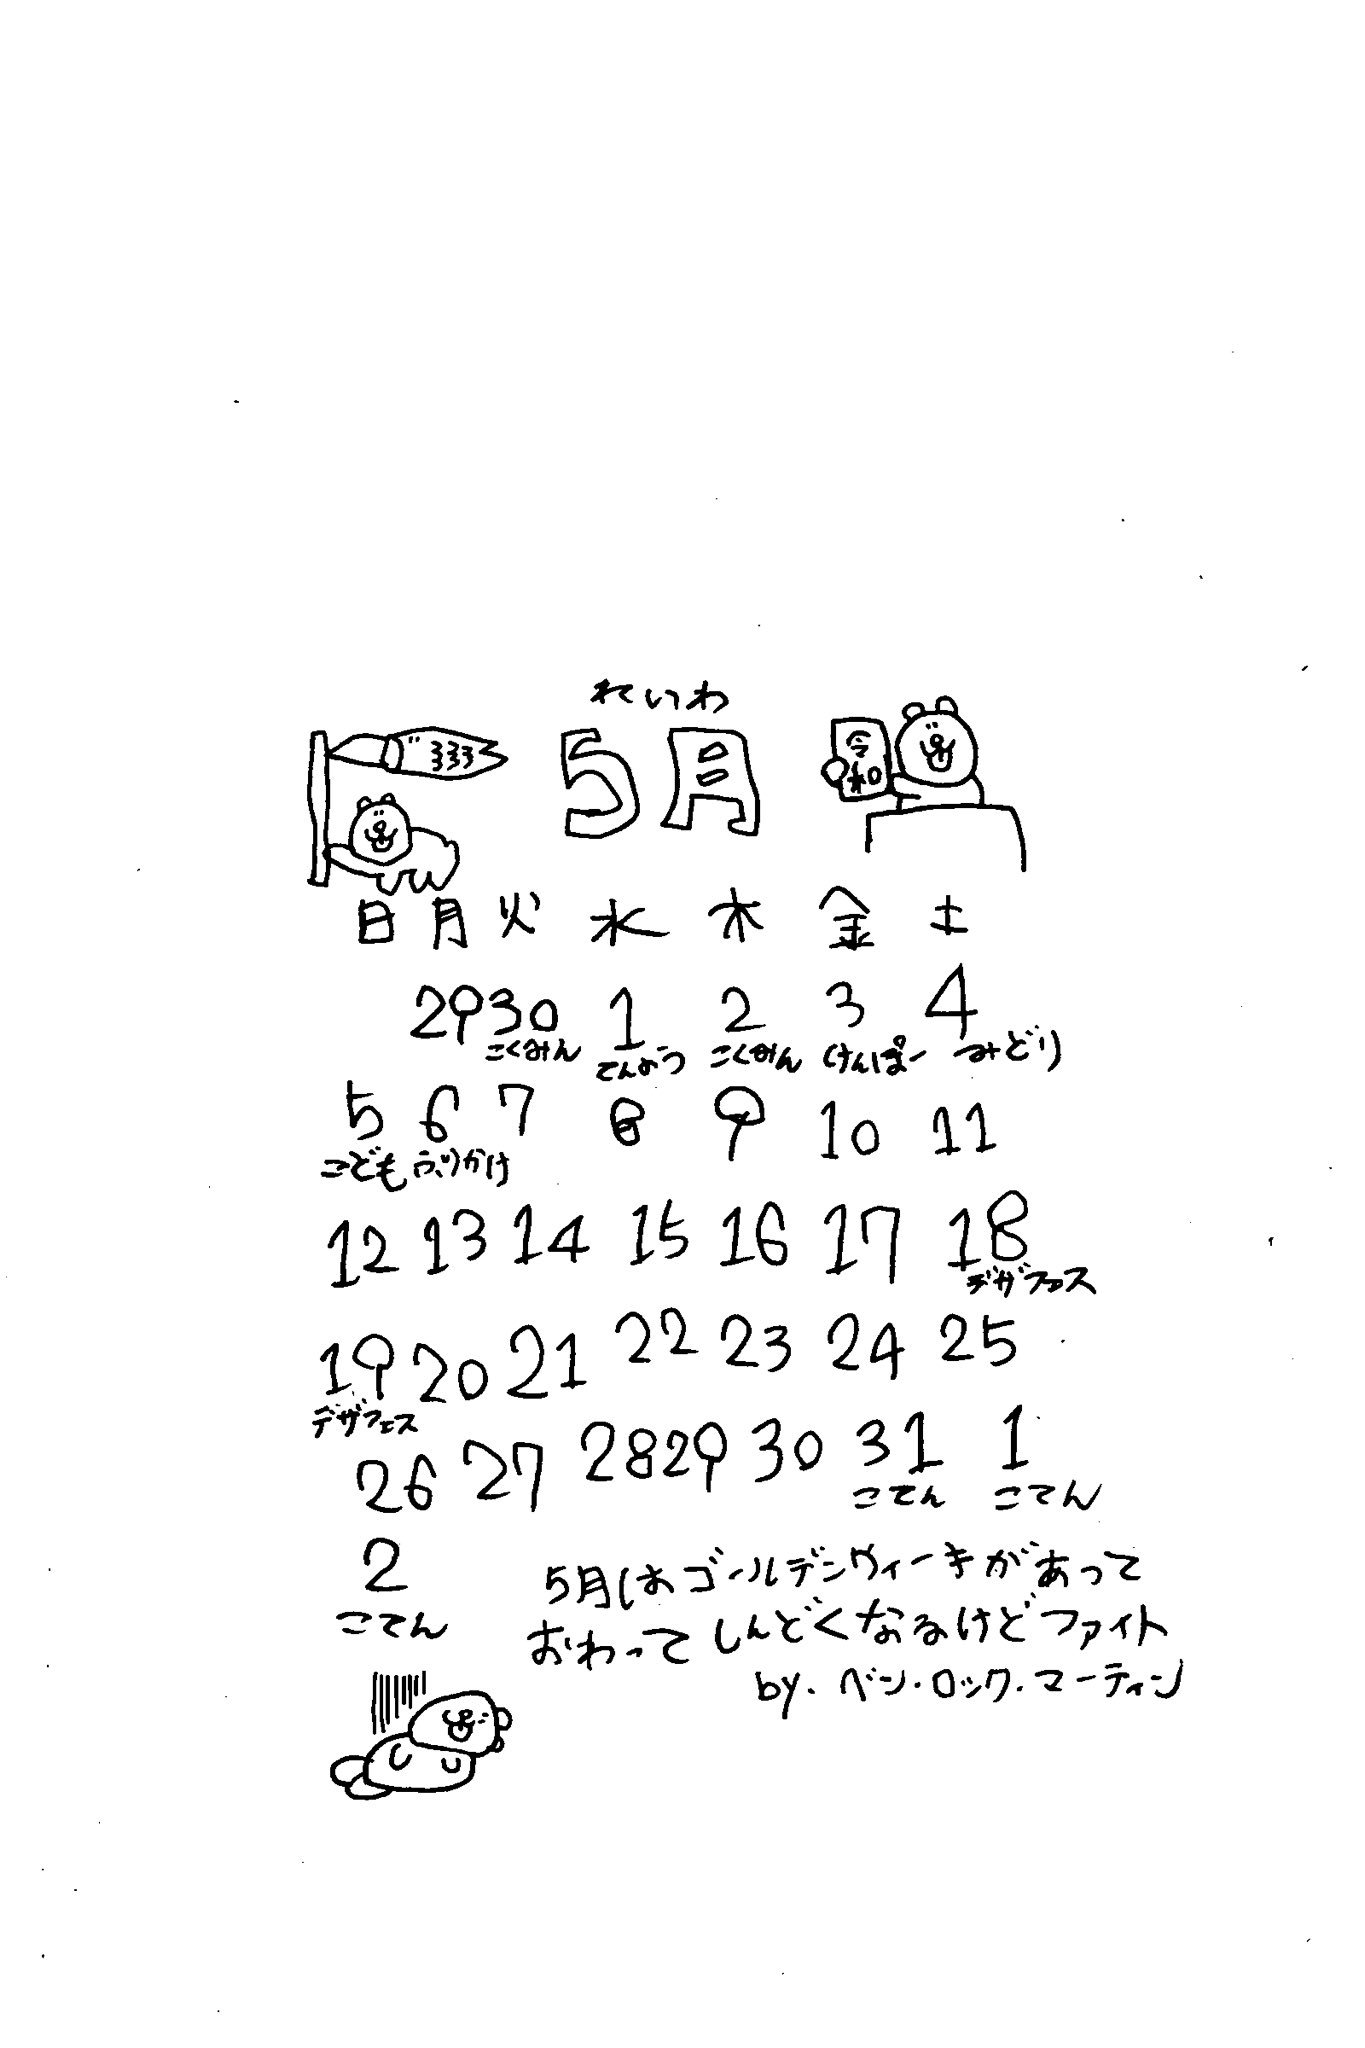 れいわ
5月
令和
日 月 火 水 木 金 土
29 30 1 2 3 4
こくみん てんのう こくみん けんぽー みどり
5 6 7 8 9 10 11
こども ふりかけ
12 13 14 15 16 17 18
デザフェス
19 20 21 22 23 24 25
デザフェス
26 27 28 29 30 31 1
こてん こてん
2
こてん
5月はゴールデンウィークがあって
おわってしんどくなるけどファイト
by.ベン.ロック.マーティン